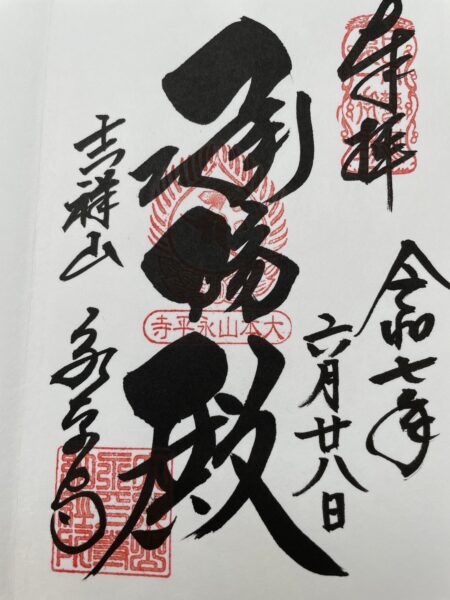 奉拝
令和七年
六月廿八日
承陽殿
大本山永平寺
吉祥山
永平寺